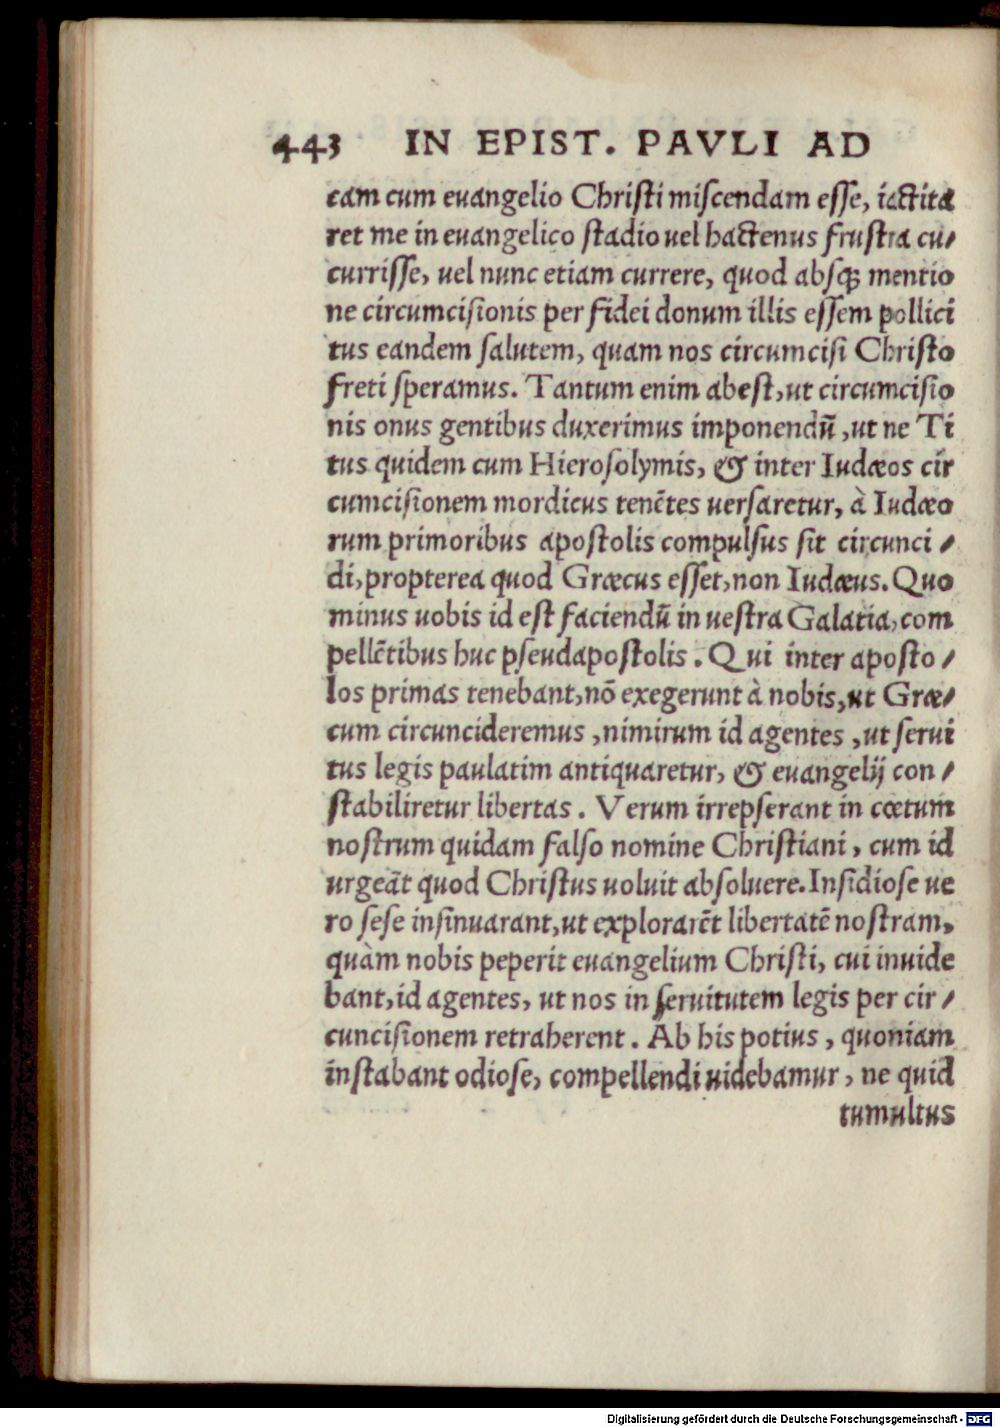 443 IN EPIST. PAVLI AD
eam cum euangelio Christi miscendam esse, iactita
ret me in euangelico stadio uel hactenus frustra cu/
currisse, uel nunc etiam currere, quod absq; mentio
ne circumcisionis per fidei donum illis essem pollici
tus eandem salutem, quam nos circumcisi Christo
freti speramus. Tantum enim abest, ut circumcisio
nis onus gentibus duxerimus imponendū, ut ne Ti
tus quidem cum Hierosolymis, & inter Iudæos cir
cumcisionem mordicus tenētes uersaretur, à Iudæo
rum primoribus apostolis compulsus sit circunci/
di, propterea quod Græcus esset, non Iudæus. Quo
minus uobis id est faciendū in uestra Galatia, com
pellētibus huc pseudapostolis. Qui inter aposto/
los primas tenebant, nō exegerunt à nobis, ut Græ/
cum circuncideremus, nimirum id agentes, ut serui
tus legis paulatim antiquaretur, & euangelij con/
stabiliretur libertas. Verum irrepserant in cœtum
nostrum quidam falso nomine Christiani, cum id
urgeāt quod Christus uoluit absoluere. Insidiose ue
ro sese insinuarant, ut explorarēt libertatē nostram,
quàm nobis peperit euangelium Christi, cui inuide
bant, id agentes, ut nos in seruitutem legis per cir/
cuncisionem retraherent. Ab his potius, quoniam
instabant odiose, compellendi uidebamur, ne quid
tumultus
Digitalisierung gefördert durch die Deutsche Forschungsgemeinschaft - DFG